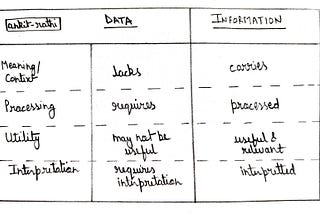 ankit-rathi DATA INFORMATION
Meaning/ Context lacks carries
Processing requires processed
Utility may not be useful useful & relevant
Interpretation requires interpretation interpretted